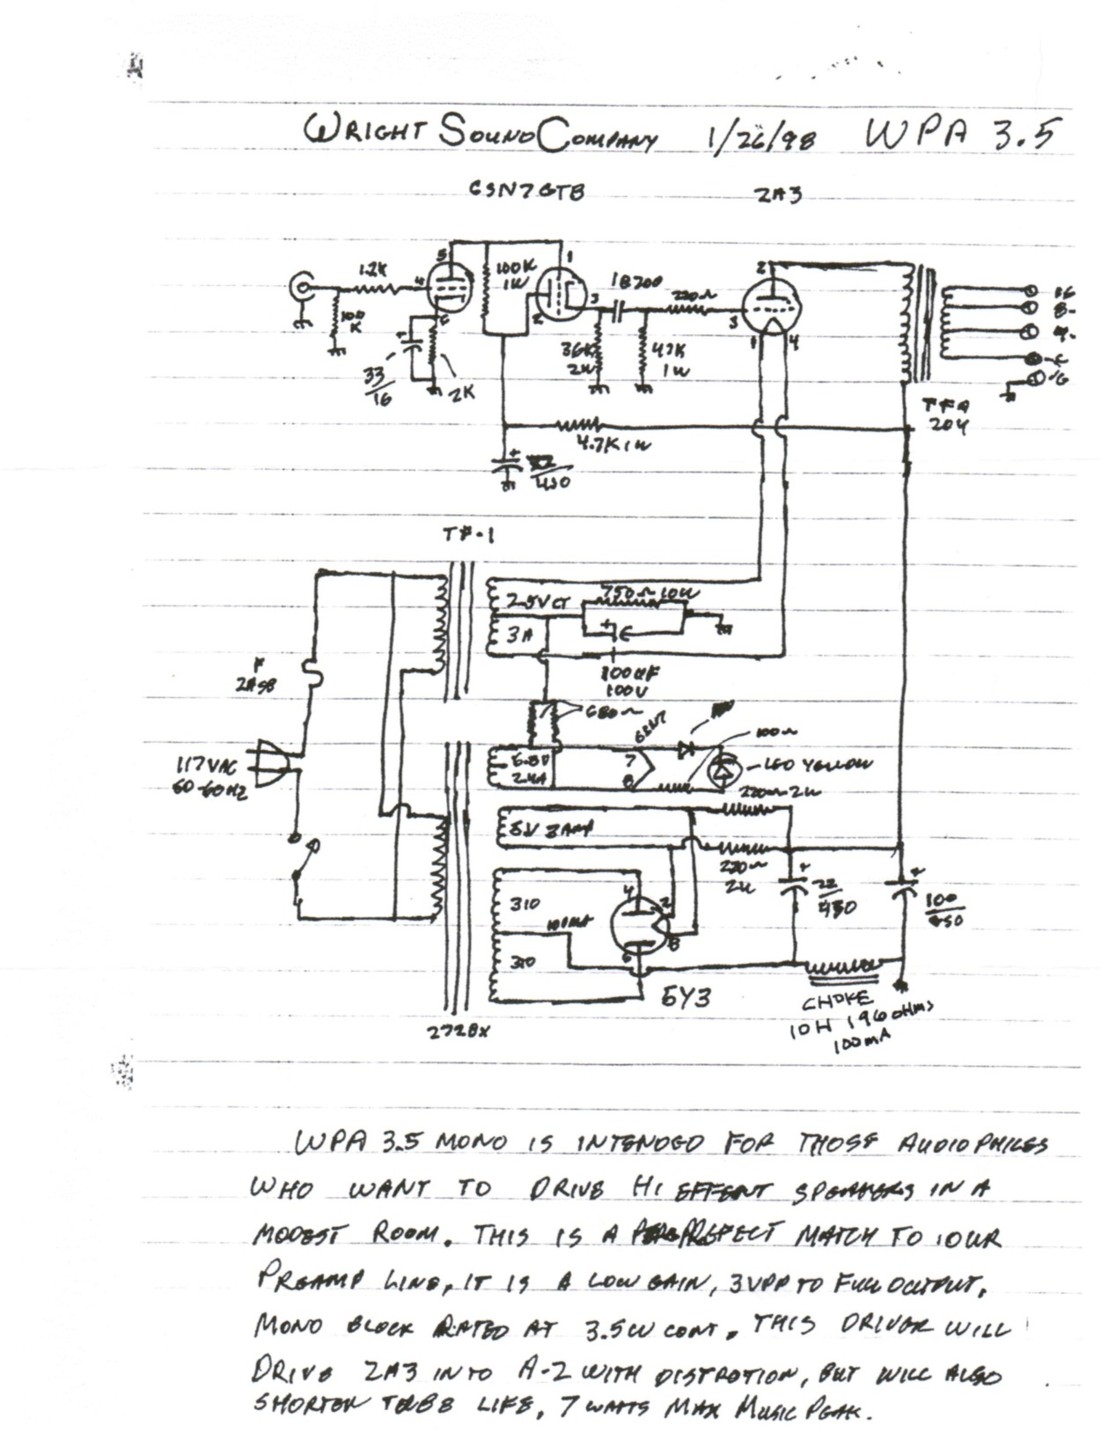 WRIGHT SOUND COMPANY 1/26/98 WPA 3.5
6SN7GTB 2A3
1.2K
100K
1W
18700
220Ω
100
K
5
4
6
1
2
3
2
3
1
4
16
8-
4-
-C
-G
33/16
2K
36K
2W
47K
1W
4.7K 1W
/450
TFA
204
TF-1
2.5VCT
3A
750Ω 10W
100UF
100V
F
2ASB
680Ω
6SN7
7
8
100Ω
LED YELLOW
117VAC
50-60HZ
2.4A
220Ω 2W
5V 2AMP
220Ω
2W
22/450
100/450
310
100MA
310
4
2
8
6
5Y3
CHOKE
10H 196 OHMS
100MA
272BX
WPA 3.5 MONO IS INTENDED FOR THOSE AUDIOPHILES
WHO WANT TO DRIVE HI EFFENT SPEAKERS IN A
MODEST ROOM. THIS IS A PREFECT MATCH TO OUR
PREAMP LINE, IT IS A LOW GAIN, 3VPP TO FULL OUTPUT,
MONO BLOCK RATED AT 3.5W CONT. THIS DRIVER WILL
DRIVE 2A3 INTO A-2 WITH DISTROTION, BUT WILL ALSO
SHORTEN TUBE LIFE. 7 WATTS MAX MUSIC PEAK.